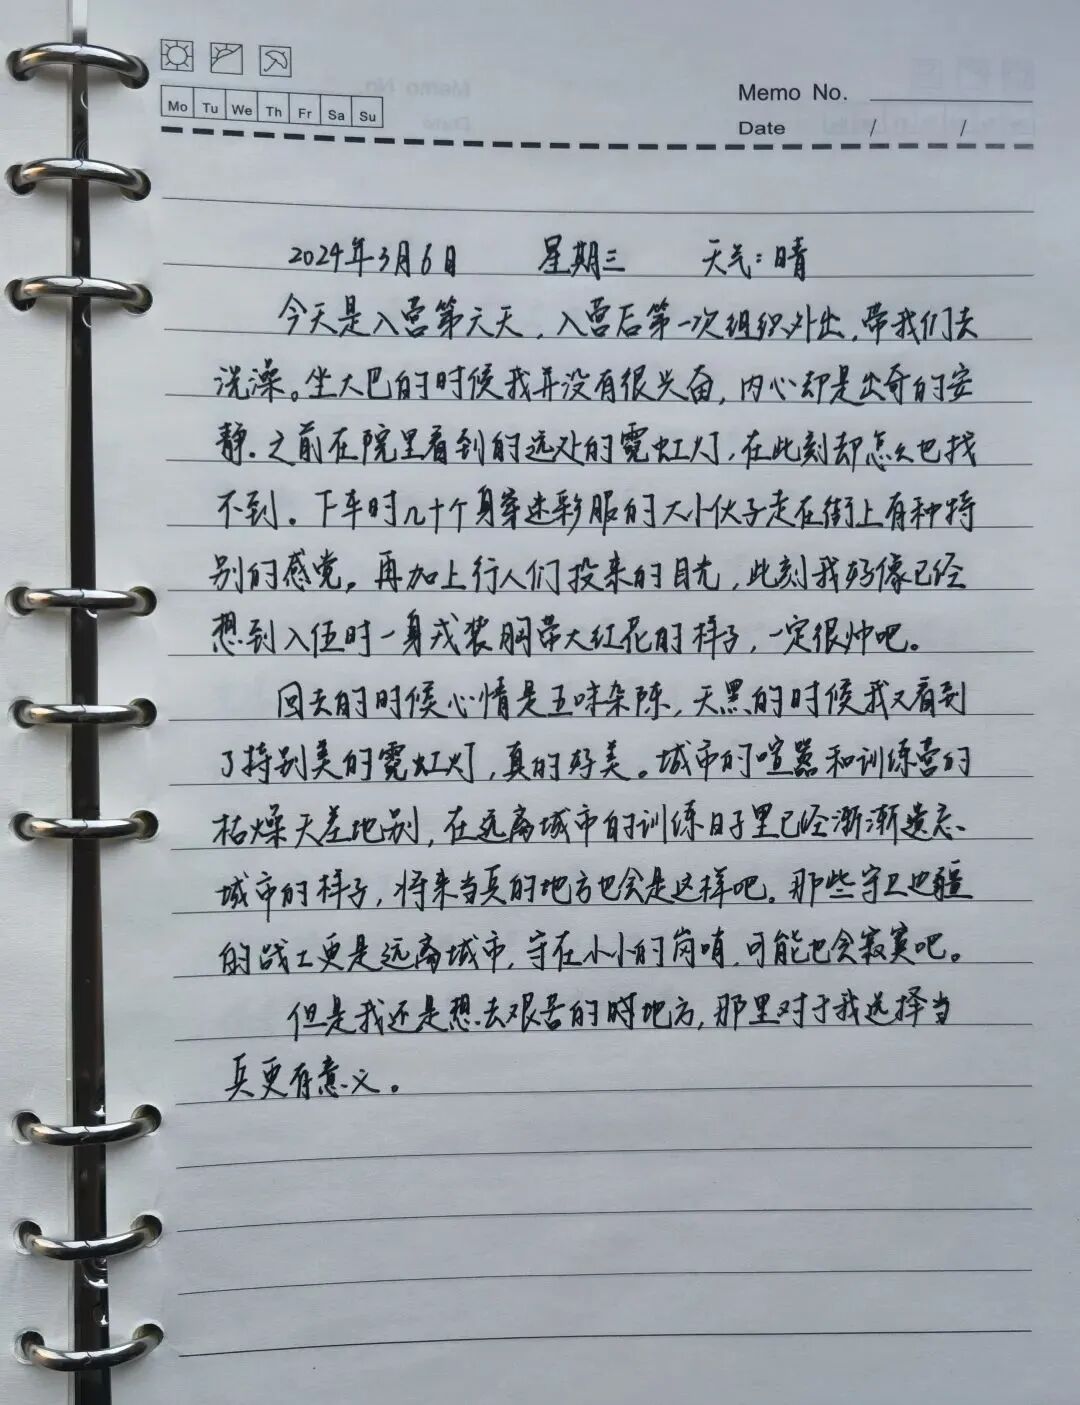 Mo Tu We Th Fr Sa Su
Memo No.
Date / /
2024年3月6日 星期三 天气:晴
今天是入营第六天,入营后第一次组织外出,带我们去
洗澡。坐大巴的时候我并没有很兴奋,内心却是出奇的安
静。之前在院里看到的远处的霓虹灯,在此刻却怎么也找
不到。下车时几十个身穿迷彩服的大小伙子走在街上有种特
别的感觉。再加上行人们投来的目光,此刻我好像已经
想到入伍时一身戎装胸带大红花的样子,一定很帅吧。
回去的时候心情是五味杂陈,天黑的时候我又看到
了特别美的霓虹灯,真的好美。城市的喧嚣和训练营的
枯燥天差地别,在远离城市的训练日子里已经渐渐遗忘
城市的样子,将来当兵的地方也会是这样吧。那些守卫边疆
的战士更是远离城市,守在小小的岗哨,可能也会寂寞吧。
但是我还是想去艰苦的时地方,那里对于我选择当
兵更有意义。